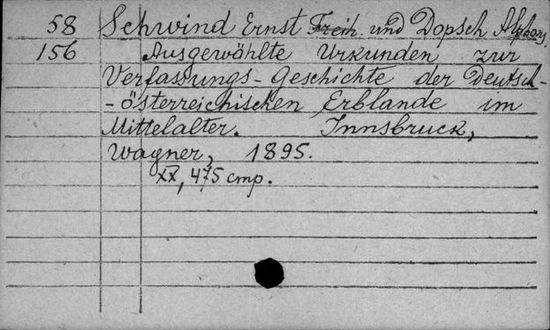 58 Schwind Ernst Freih. und Dopsch Alphons,
156 Ausgewählte Urkunden zur
Verfassungs-Geschichte der Deutsch-
-österreichischen Erblande im
Mittelalter. Innsbruck,
Wagner, 1895.
XX, 475 стр.